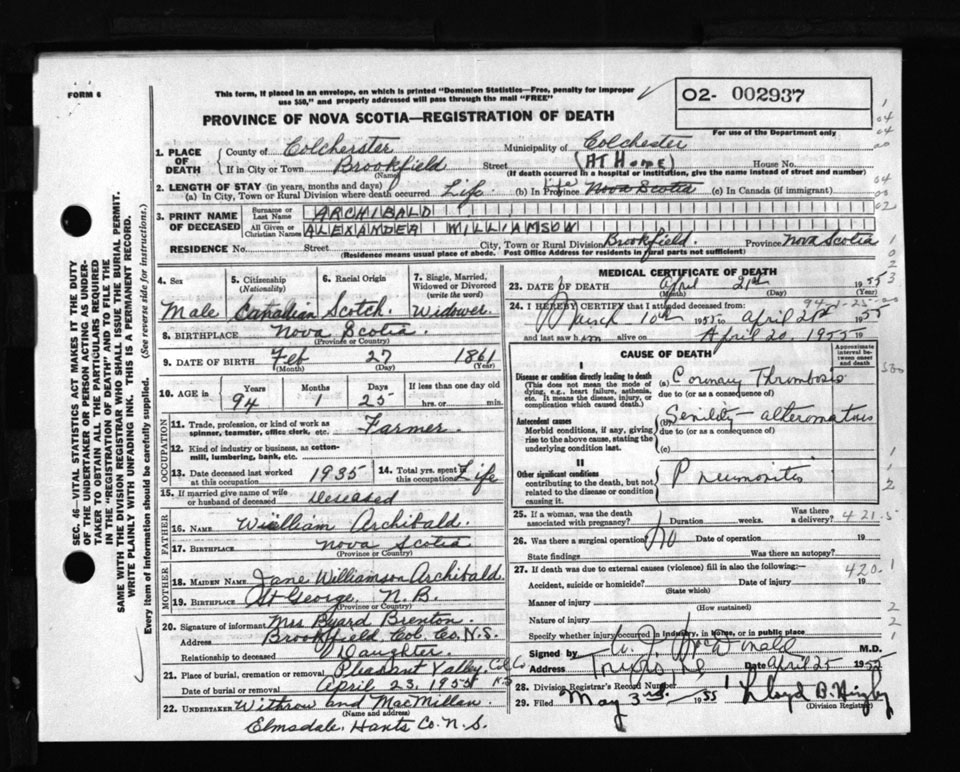 FORM 6
This form, if placed in an envelope, on which is printed "Dominion Statistics—Free, penalty for improper
use $50," and properly addressed will pass through the mail "FREE"
O2- 002937
For use of the Department only
PROVINCE OF NOVA SCOTIA—REGISTRATION OF DEATH
1. PLACE OF DEATH
County of Colcherster Municipality of Colchester
If in City or Town Brookfield (Name) Street (AT HOME) House No.
(If death occurred in a hospital or institution, give the name instead of street and number)
2. LENGTH OF STAY (in years, months and days)
(a) In City, Town or Rural Division where death occurred Life (b) In Province life Nova Scotia (c) In Canada (if immigrant)
3. PRINT NAME OF DECEASED
Surname or Last Name ARCHIBALD
All Given or Christian Names ALEXANDER WILLIAMSON
RESIDENCE No. Street City, Town or Rural Division Brookfield. Province Nova Scotia
(Residence means usual place of abode. Post Office Address for residents in rural parts not sufficient)
4. Sex Male
5. Citizenship (Nationality) Canadian
6. Racial Origin Scotch.
7. Single, Married, Widowed or Divorced (write the word) Widower.
8. BIRTHPLACE Nova Scotia (Province or Country)
9. DATE OF BIRTH Feb (Month) 27 (Day) 1861 (Year)
10. AGE in Years 94 Months 1 Days 25 If less than one day old hrs. or min.
OCCUPATION
11. Trade, profession, or kind of work as spinner, teamster, office clerk, etc. Farmer.
12. Kind of industry or business, as cotton-mill, lumbering, bank, etc.
13. Date deceased last worked at this occupation 1935
14. Total yrs. spent in this occupation Life
15. If married give name of wife or husband of deceased Deceased
FATHER
16. NAME William Archibald.
17. BIRTHPLACE Nova Scotia (Province or Country)
MOTHER
18. MAIDEN NAME Jane Williamson Archibald.
19. BIRTHPLACE St George, N.B. (Province or Country)
20. Signature of informant Mrs Byard Brenton.
Address Brookfield, Col. Co. N.S.
Relationship to deceased Daughter.
21. Place of burial, cremation or removal Pleasant Valley, Col Co N.S
Date of burial or removal April 23, 1955
22. UNDERTAKER Withrow and MacMillan.
(Name and address)
Elmsdale, Hants Co. N.S.
MEDICAL CERTIFICATE OF DEATH
23. DATE OF DEATH April (Month) 21st (Day) 1955 (Year)
94-1-25
24. I HEREBY CERTIFY that I attended deceased from:
March 10th 1955 to April 21st 1955
and last saw him alive on April 20, 1955 19
CAUSE OF DEATH
Approximate interval between onset and death
I
Disease or condition directly leading to death
(This does not mean the mode of dying, e.g., heart failure, asthenia, etc. It means the disease, injury, or complication which caused death.)
(a) Cornary Thrombosis
due to (or as a consequence of)
Antecedent causes
Morbid conditions, if any, giving rise to the above cause, stating the underlying condition last.
(b) Senility
due to (or as a consequence of)
(c)
II
Other significant conditions
contributing to the death, but not related to the disease or condition causing it.
Pneumonitis
25. If a woman, was the death associated with pregnancy? Duration weeks. Was there a delivery? 421.5
26. Was there a surgical operation? No Date of operation 19
State findings Was there an autopsy?
27. If death was due to external causes (violence) fill in also the following:— 420.1
Accident, suicide or homicide? (State which) Date of injury 19
Manner of injury (How sustained)
Nature of injury
Specify whether injury occurred in industry, in home, or in public place
Signed by M.D.
Address Truro, NS Date April 25 1955
28. Division Registrar's Record Number
29. Filed May 3rd. 1955 Lloyd B. (Division Registrar)
SEC. 46—VITAL STATISTICS ACT MAKES IT THE DUTY
OF THE UNDERTAKER OR PERSON ACTING AS UNDER-
TAKER TO OBTAIN ALL THE PARTICULARS REQUIRED
IN THE "REGISTRATION OF DEATH" AND TO FILE THE
SAME WITH THE DIVISION REGISTRAR WHO SHALL ISSUE THE BURIAL PERMIT.
WRITE PLAINLY WITH UNFADING INK. THIS IS A PERMANENT RECORD.
Every item of information should be carefully supplied. (See reverse side for instructions.)